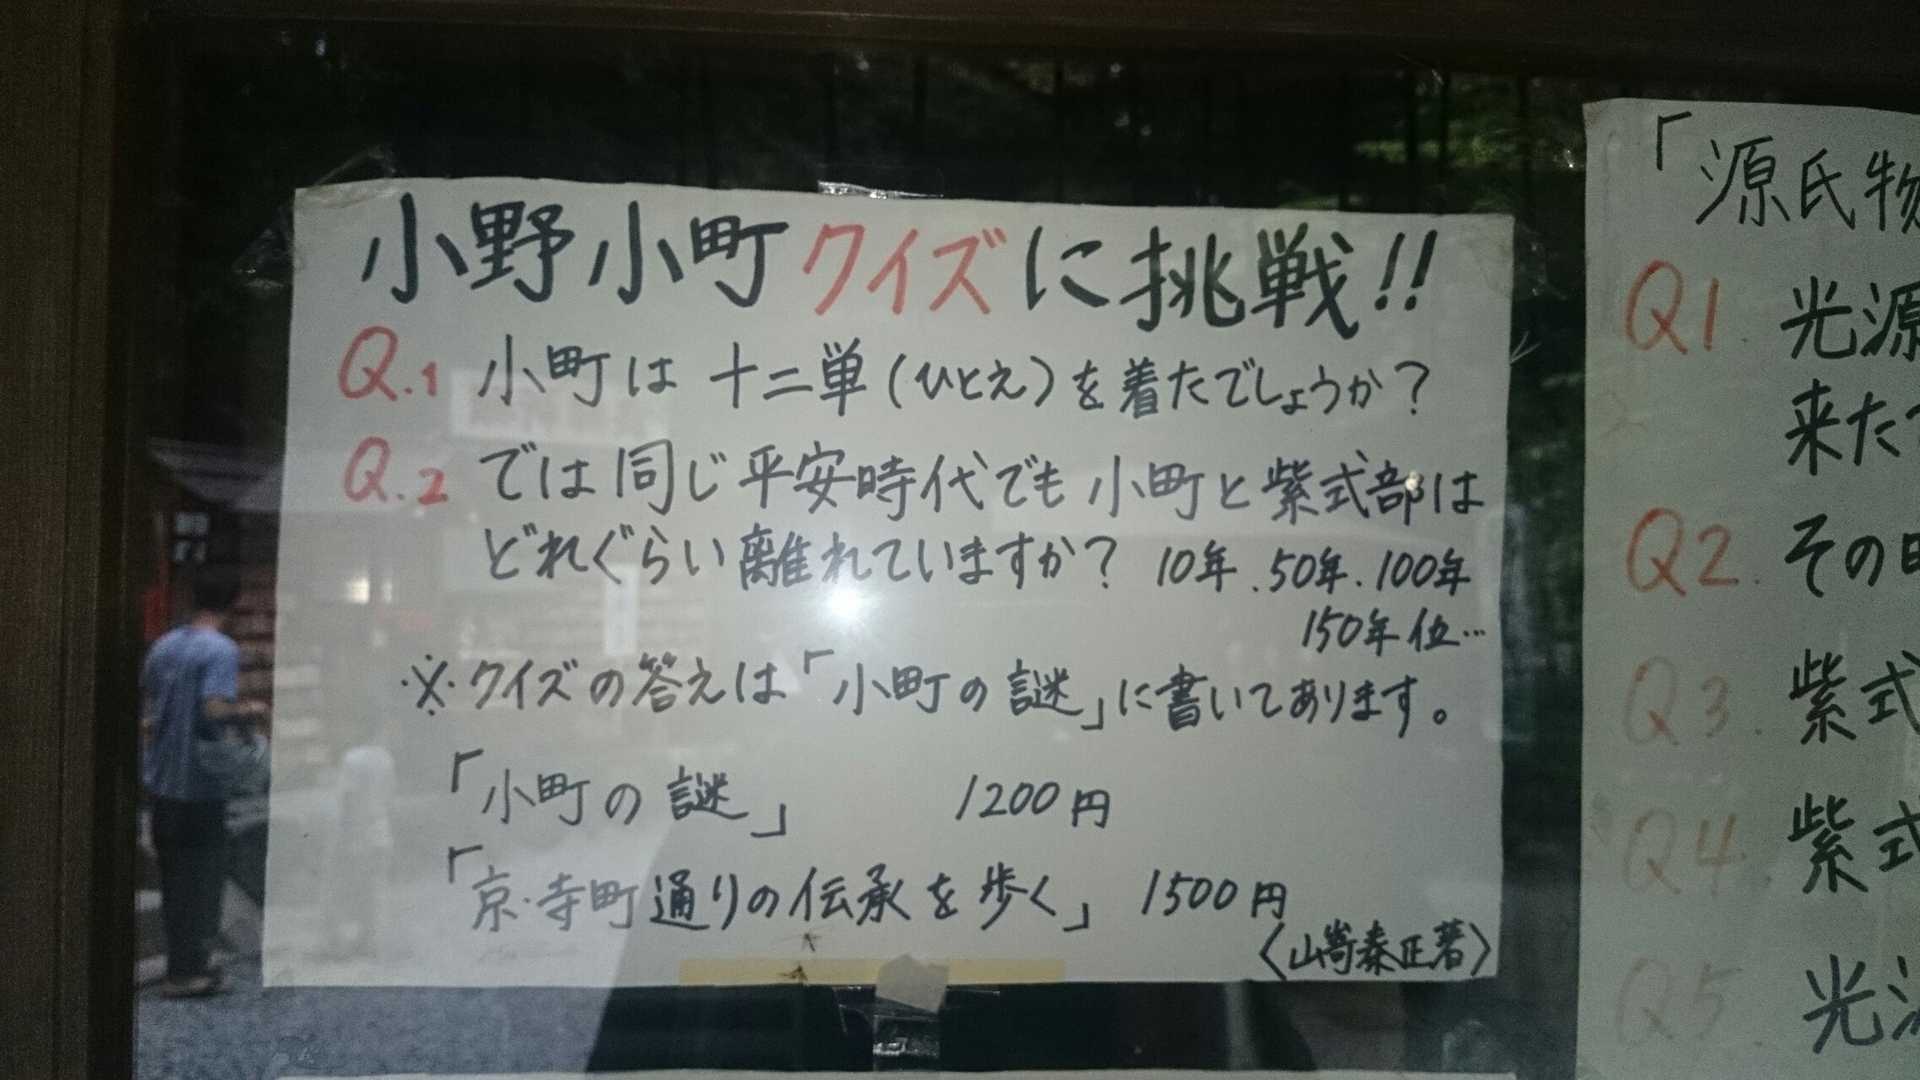 小野小町クイズに挑戦!!
Q.1 小町は十二単(ひとえ)を着たでしょうか?
Q.2 では同じ平安時代でも小町と紫式部は
どれぐらい離れていますか? 10年.50年.100年
150年位…
※クイズの答えは「小町の謎」に書いてあります。
「小町の謎」 1200円
「京・寺町通りの伝承を歩く」 1500円
〈山嵜泰正著〉
「源氏物
Q1. 光源
来たで
Q2. その
Q3. 紫式
Q4. 紫式
Q5. 光